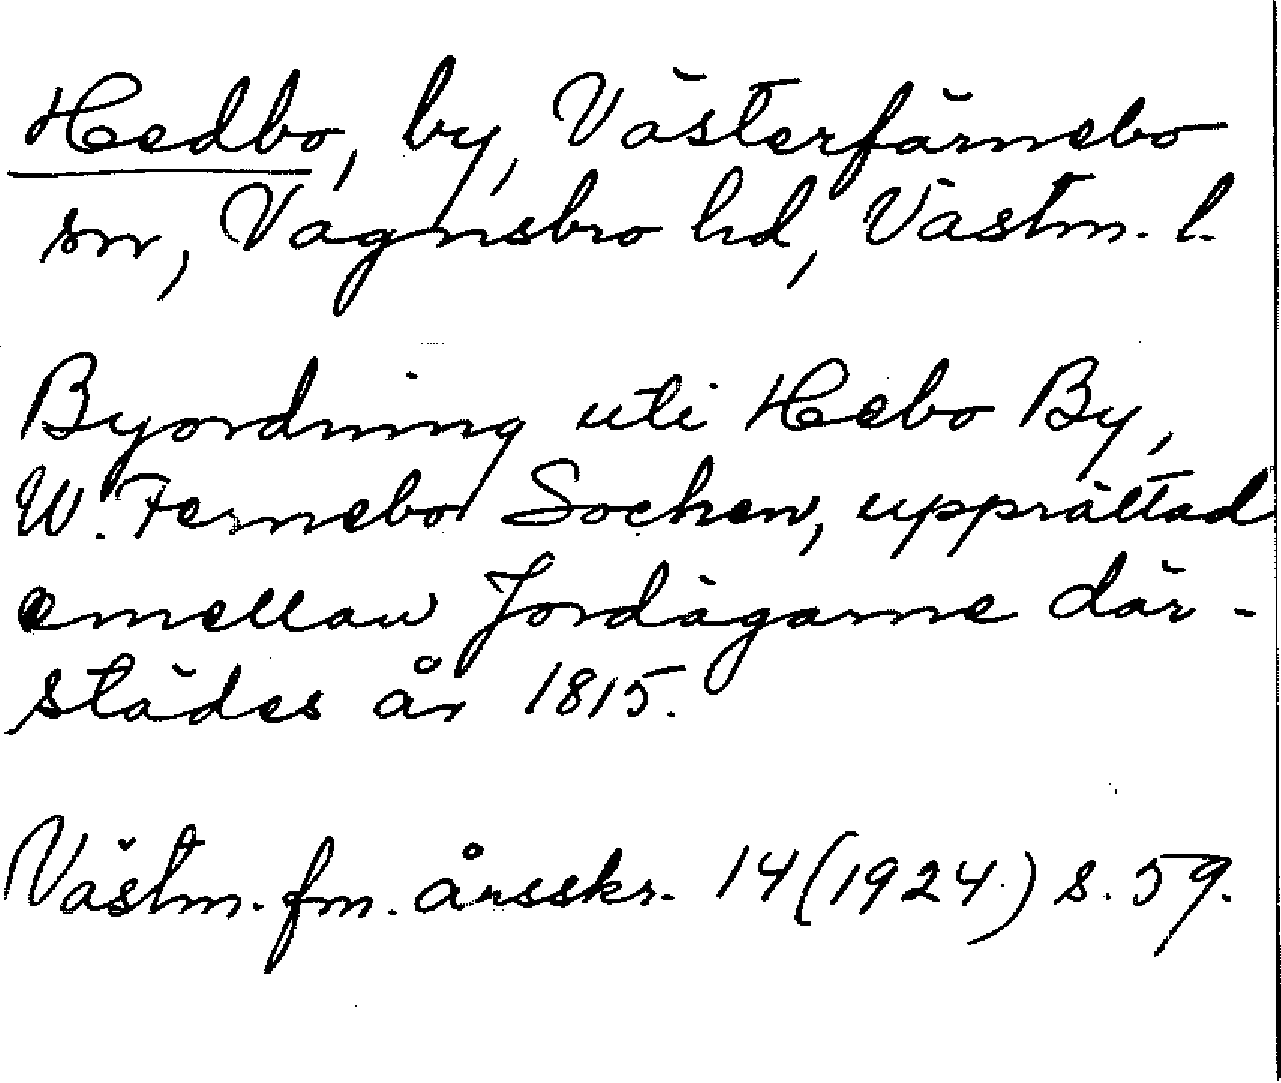 Hedbo, by, Västerfärnebo
sn, Vagnsbro hd, Västm. l.
Byordning uti Hebo By,
W. Fernebo Sochen, upprättad
emellan Jordägarne där-
städes år 1815.
Västm. fm. årsskr. 14 (1924.) s. 59.